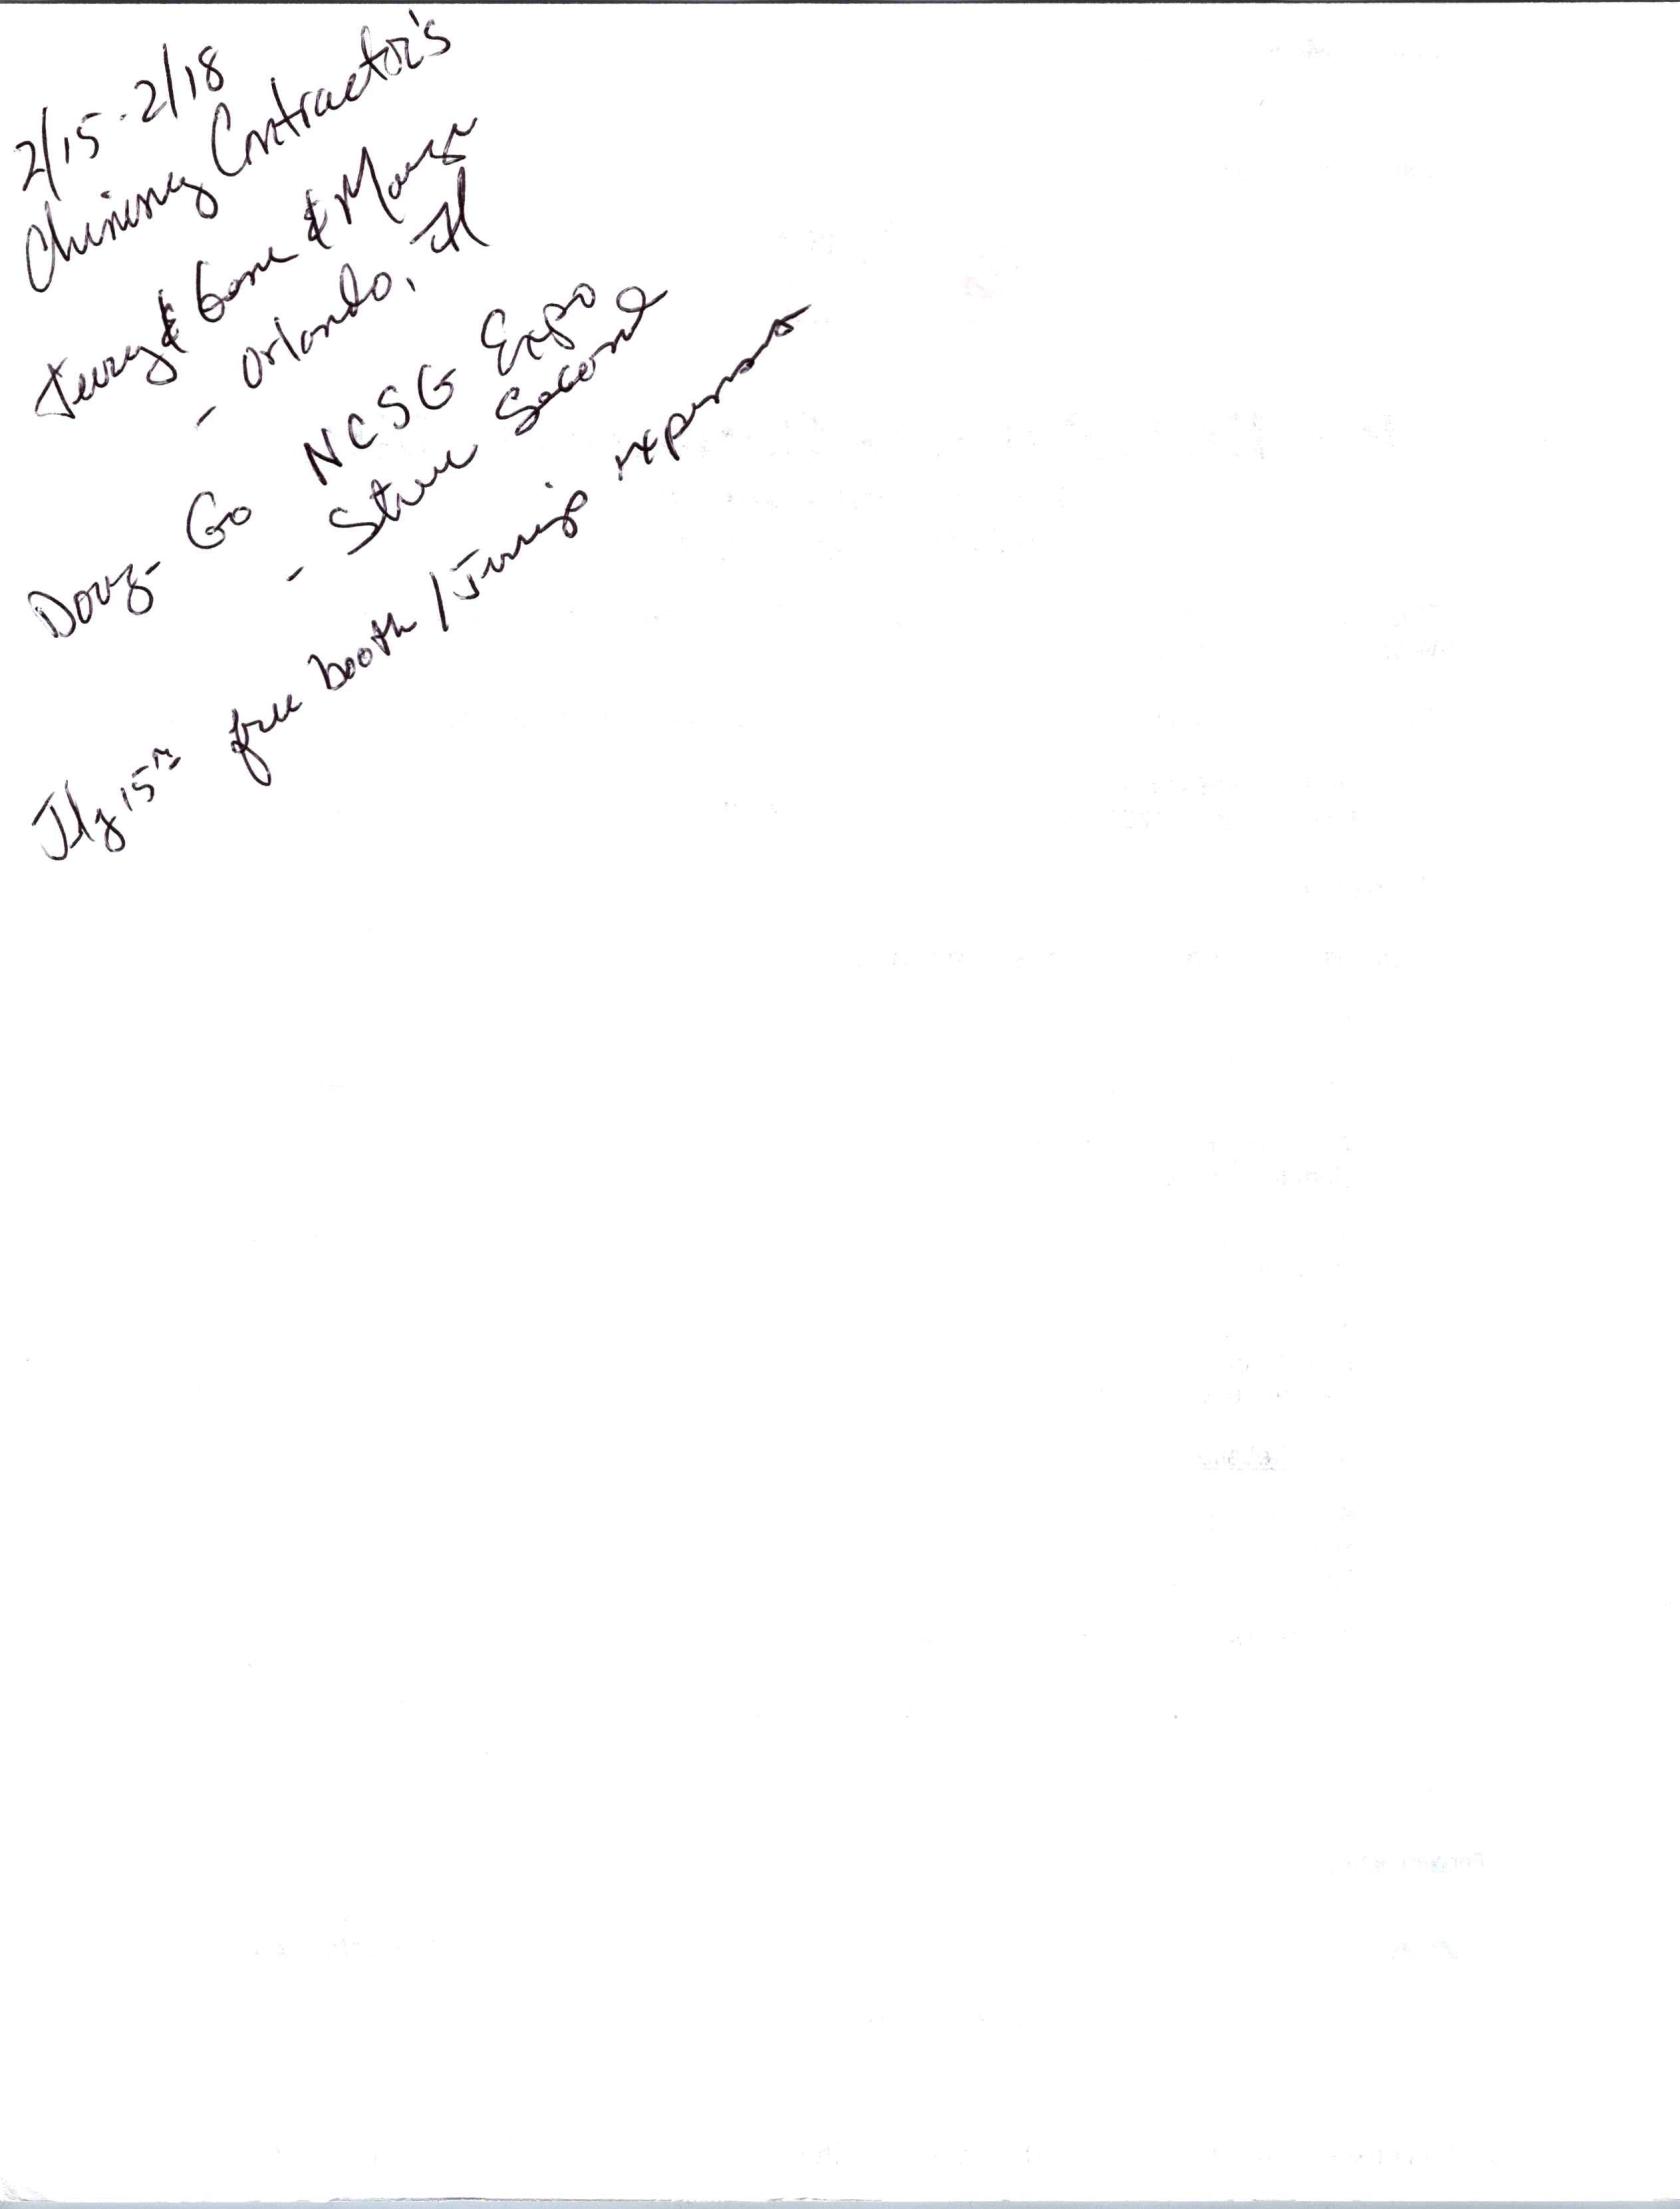 2/15 - 2/18
Chimney Contractor's
Jerry & Gene & Marge
- Orlando, Fl
Doug - Go NCSG Expo
- Steve Second
July 15th free booth / expenses